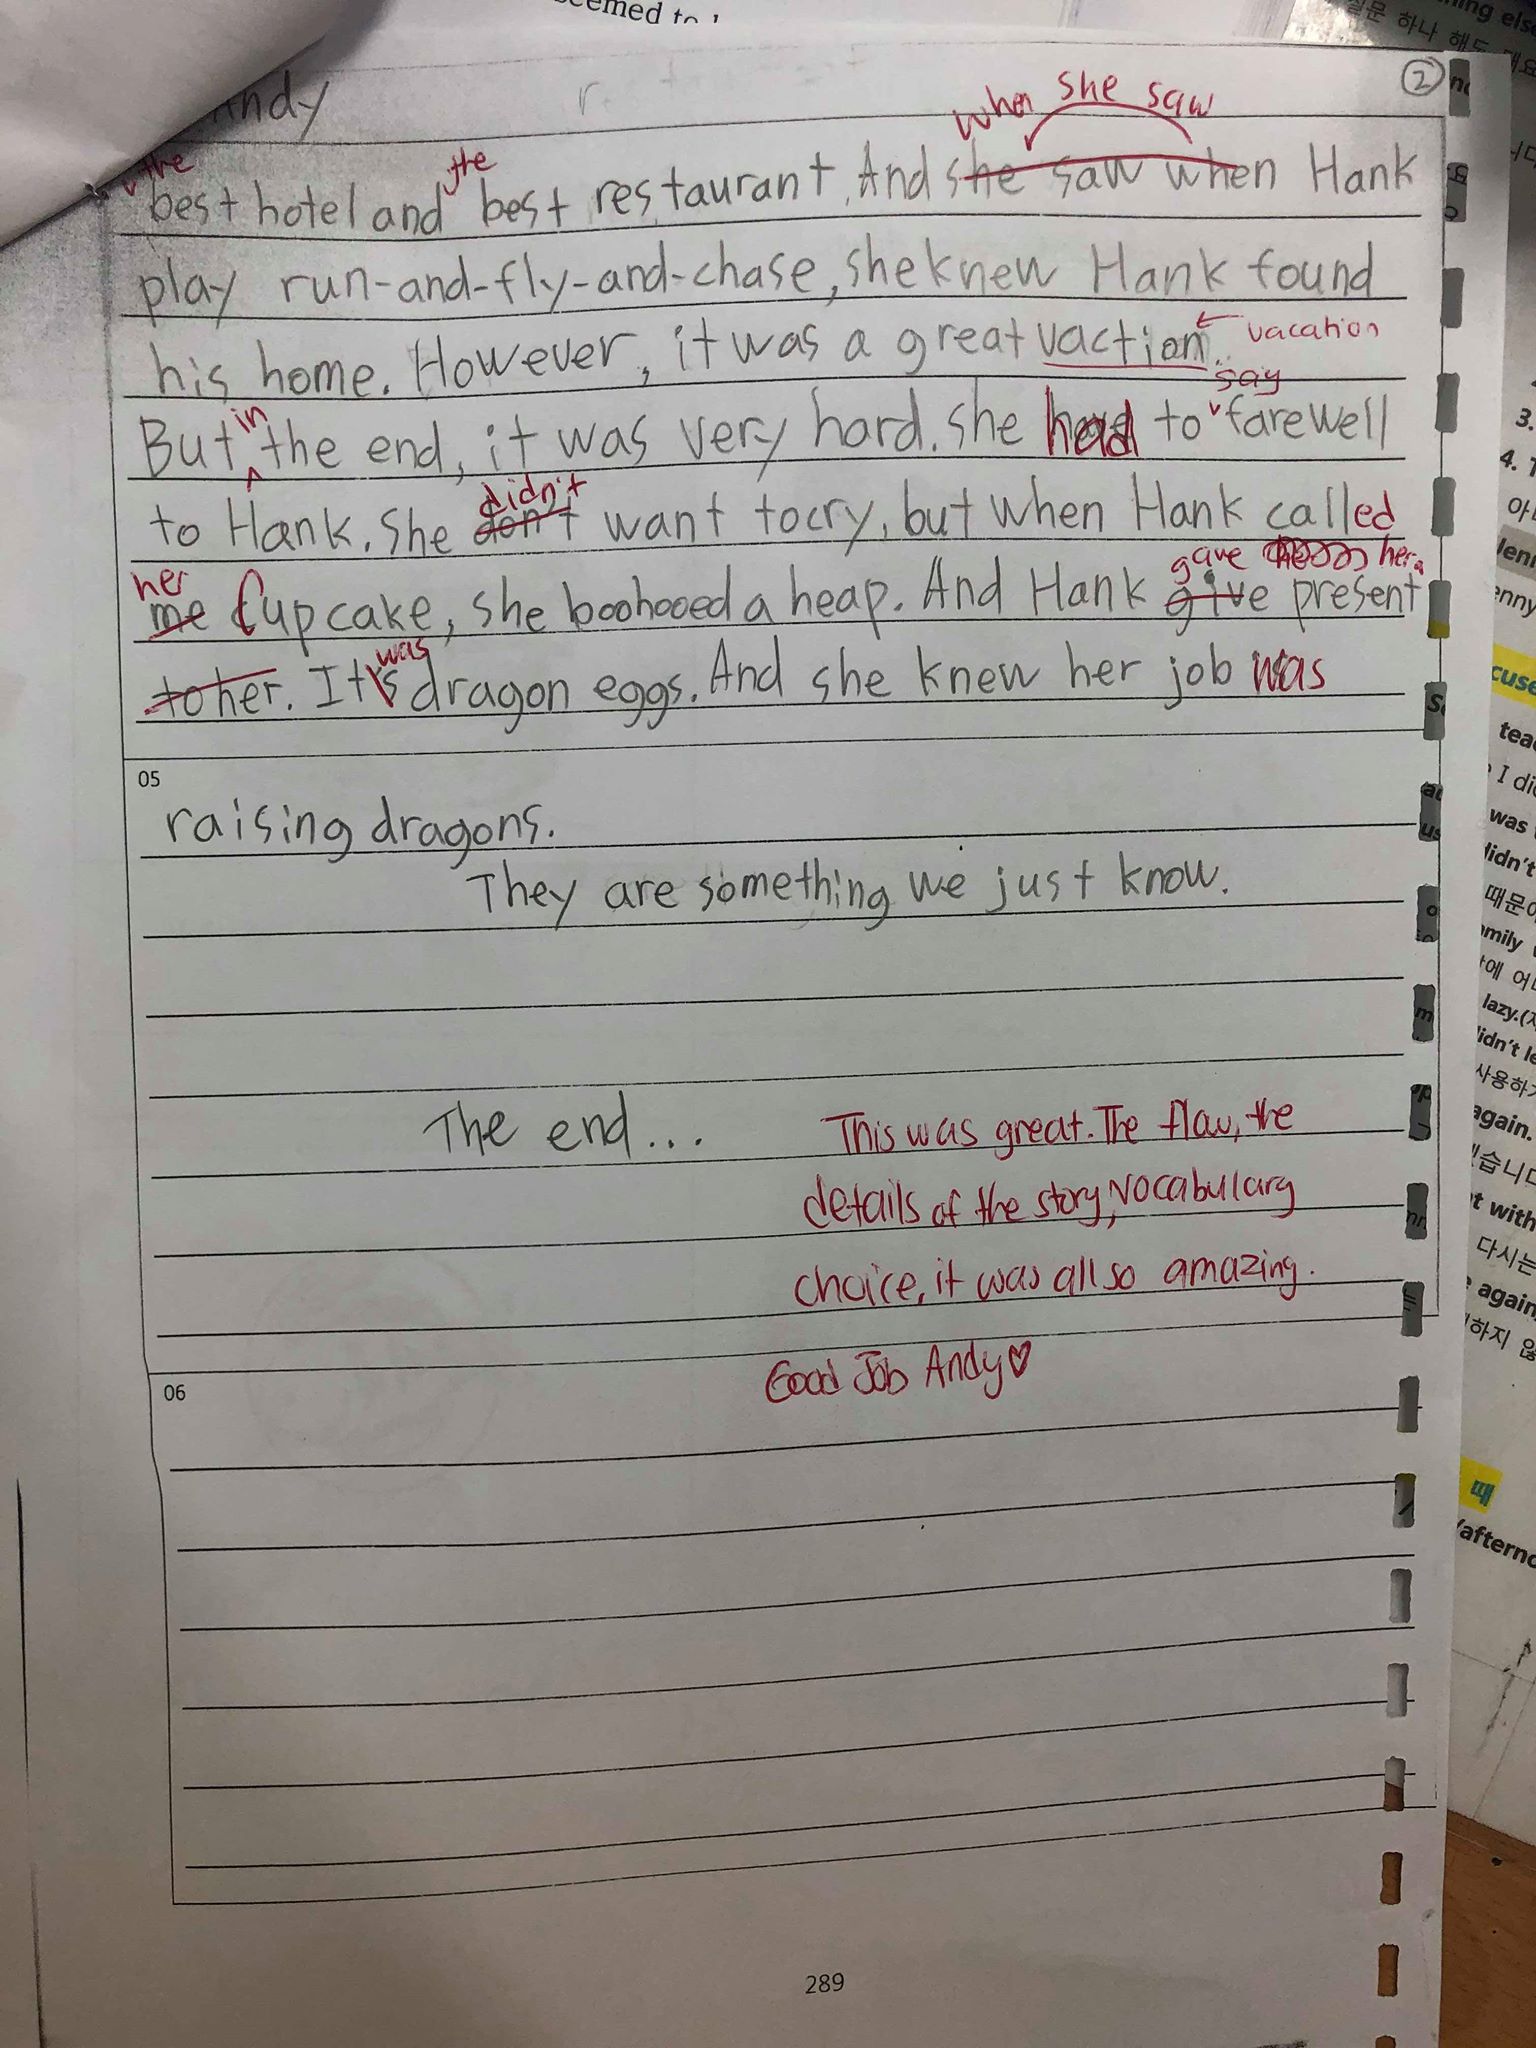 Andy
②
when she saw
the the
best hotel and best restaurant. And she saw when Hank
play run-and-fly-and-chase, she knew Hank found
his home. However, it was a great vaction. vacation
in say
But the end, it was very hard. she had to farewell
didn't
to Hank. She don't want to cry, but when Hank called
her gave her a
me Cupcake, she boohooed a heap. And Hank give present
was
to her. It's dragon eggs. And she knew her job was
05
raising dragons.
They are something we just know.
The end...
This was great. The flow, the
details of the story, vocabulary
choice, it was all so amazing.
Good Job Andy♡
06
289
seemed to
질문 하나 해도
3.
4.
I did
was
didn't
lazy.
사용하
again.
with
다시는
again
하지 않
때